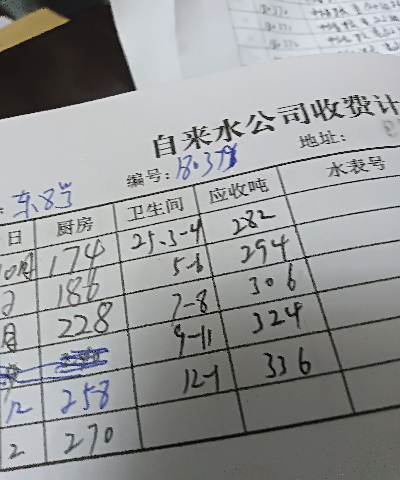 自来水公司收费计
东8号 编号: 18.379 地址:
日 厨房 卫生间 应收吨 水表号
10月 174 25.3-4 282
2 186 5-6 294
月 228 7-8 306
9-11 324
12 258 12-1 336
2 270